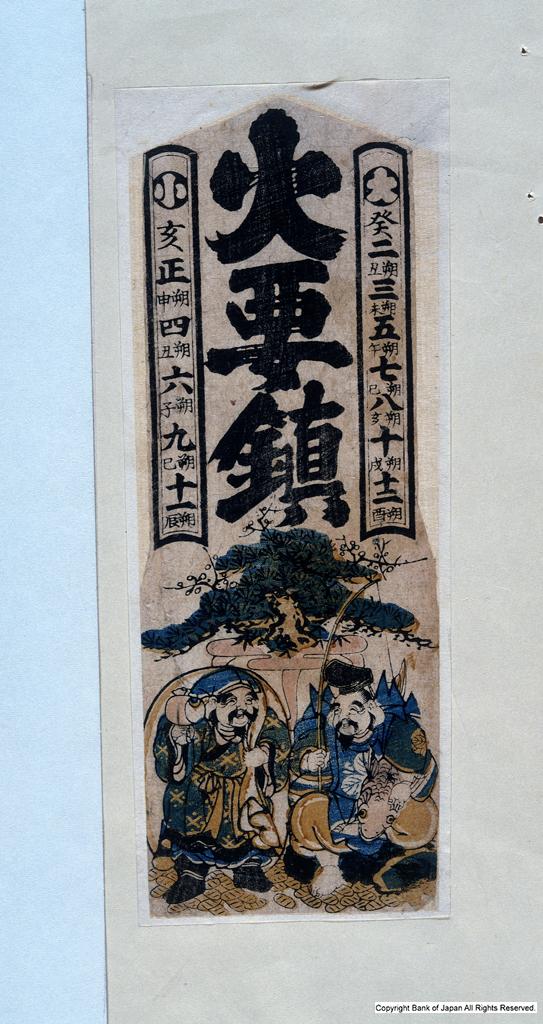 大 癸 二 朔丑 三 朔未 五 朔午 七 朔巳 八 朔亥 十 朔戌 十二 朔酉
火要鎮
小 亥 正 朔申 四 朔丑 六 朔子 九 朔巳 十一 朔辰
Copyright Bank of Japan All Rights Reserved.